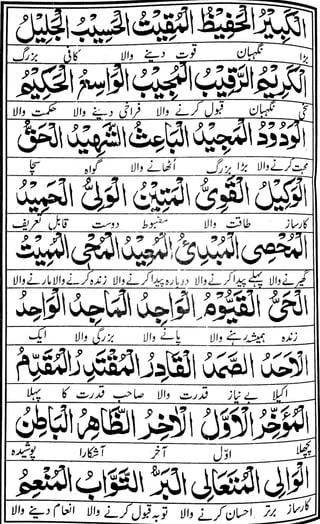 الْكَبِيْرُ الْحَفِيْظُ الْمُقِيْتُ الْحَسِيْبُ الْجَلِيْلُ
بڑا نگہبان قوت دینے والا کافی بزرگ
الْكَرِيْمُ الرَّقِيْبُ الْمُجِيْبُ الْوَاسِعُ الْحَكِيْمُ
سخی نگہبان قبول کرنے والا فراخی دینے والا حکمت والا
الْوَدُوْدُ الْمَجِيْدُ الْبَاعِثُ الشَّهِيْدُ الْحَقُّ
محبت کرنے والا بڑا بزرگ اُٹھانے والا گواہ سچا
الْوَكِيْلُ الْقَوِيُّ الْمَتِيْنُ الْوَلِيُّ الْحَمِيْدُ
کارساز طاقت والا مضبوط دوست قابل تعریف
الْمُحْصِي الْمُبْدِئُ الْمُعِيْدُ الْمُحْيِ الْمُمِيْتُ
گھیرنے والا پہلے پیدا کرنے والا دوبارہ پیدا کرنے والا زندہ کرنے والا مارنے والا
الْحَيُّ الْقَيُّوْمُ الْوَاجِدُ الْمَاجِدُ الْوَاحِدُ
زندہ ہمیشہ رہنے والا پانے والا بزرگی والا ایک
الْاَحَدُ الصَّمَدُ الْقَادِرُ الْمُقْتَدِرُ الْمُقَدِّمُ
اکیلا بے نیاز قدرت والا صاحب قدرت کا پہلا
الْمُؤَخِّرُ الْاَوَّلُ الْاٰخِرُ الظَّاهِرُ الْبَاطِنُ
پچھلا اوّل آخر آشکارا پوشیدہ
الْوَالِي الْمُتَعَالِي الْبَرُّ التَّوَّابُ الْمُنْعِمُ
کارساز برتر احسان کرنے والا توبہ قبول کرنے والا انعام دینے والا